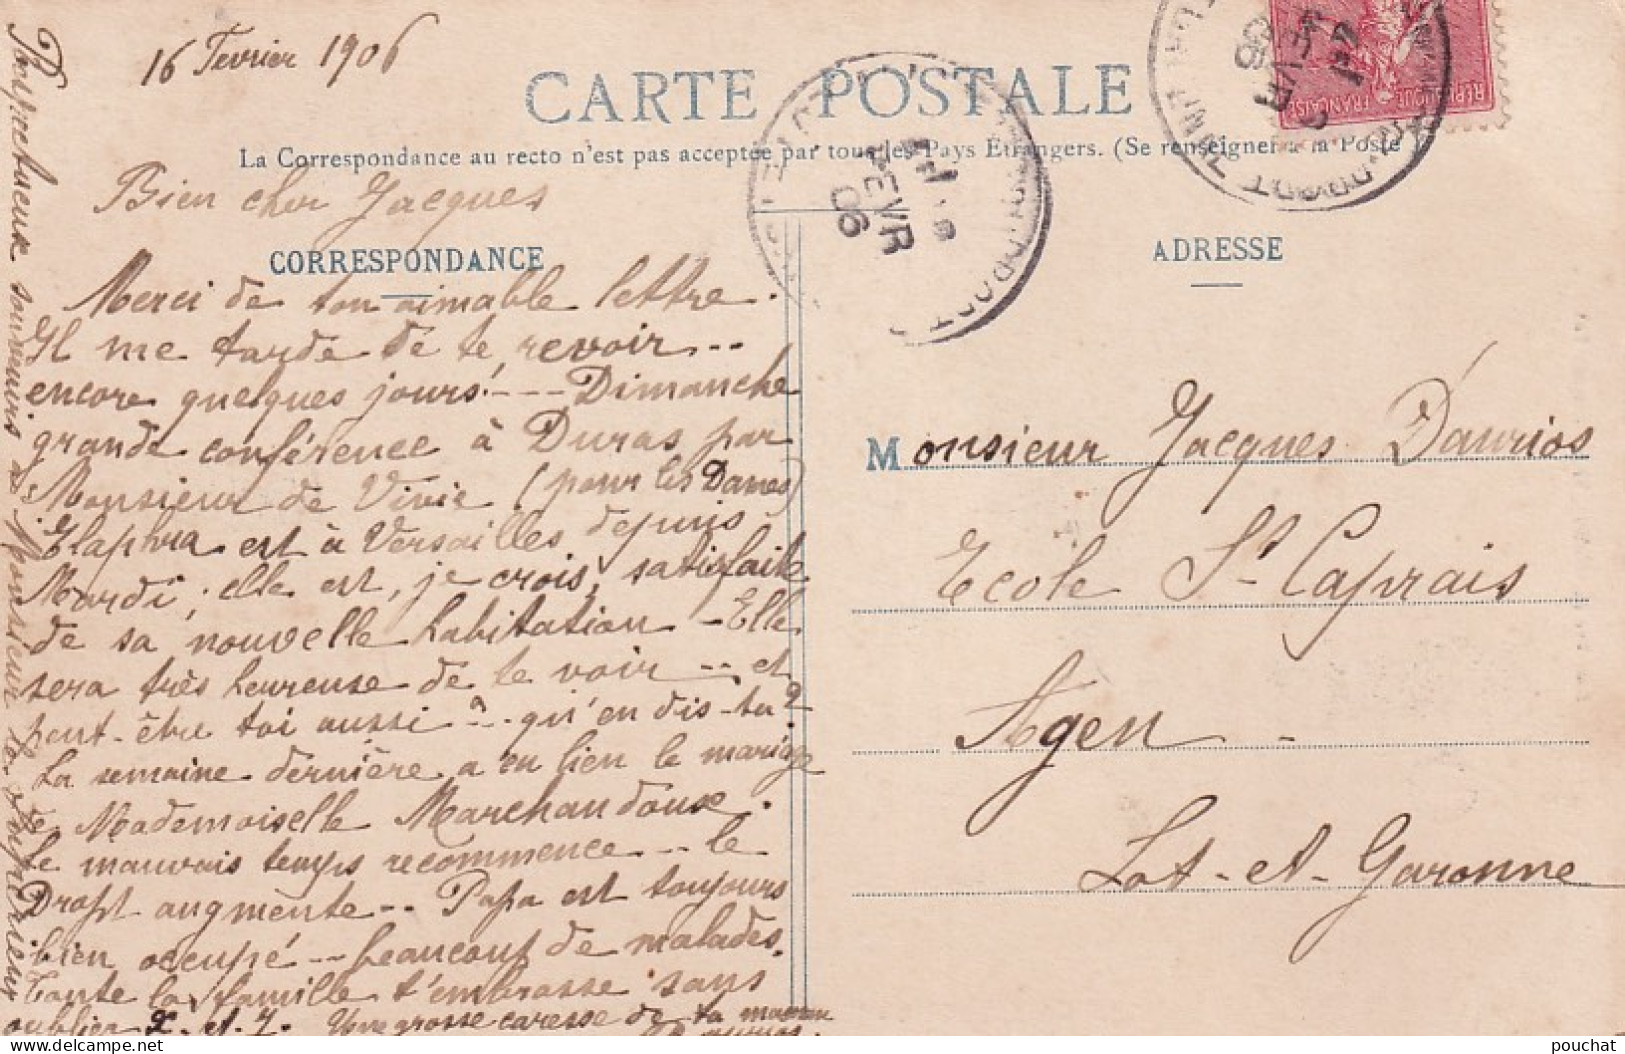 16 Fevrier 1906
CARTE POSTALE
La Correspondance au recto n'est pas acceptée par tous les Pays Etrangers. (Se renseigner à la Poste)
Bien cher Jacques
CORRESPONDANCE
Merci de ton aimable lettre.
Il me tarde de te revoir...
encore quelques jours! --- Dimanche
grande conférence à Duras par
Monsieur de Vivie (pour les Dames)
Elaphra est à Versailles depuis
Mardi; elle est, je crois, satisfaite
de sa nouvelle habitation - Elle
sera très heureuse de te voir -- et
peut-être toi aussi? -- qu'en dis-tu?
La semaine dernière a eu lieu le mariage
de Mademoiselle Marchandoux.
Le mauvais temps recommence -- le
Dropt augmente -- Papa est toujours
bien occupé -- beaucoup de malades.
Toute la famille t'embrasse sans
oublier X. et Y. Une grosse caresse de ta maman
Respectueux souvenirs à Monsieur le Supérieur
ADRESSE
Monsieur Jacques Daurios
Ecole St Caprais
Agen -
Lot-et-Garonne
FEVR
06
FEVR
06
REPUBLIQUE FRANÇAISE
pouchat